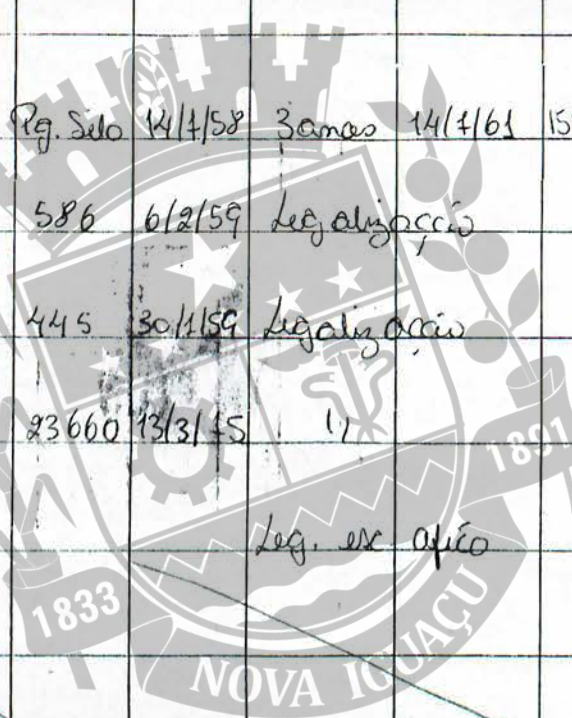 Pg. Selo 14/1/58 3 anos 14/1/61 15
586 6/2/59 Legalização
445 30/1/59 Legalização
23660 13/3/75 "
Leg. ex ofício
1891
1833
NOVA IGUAÇU